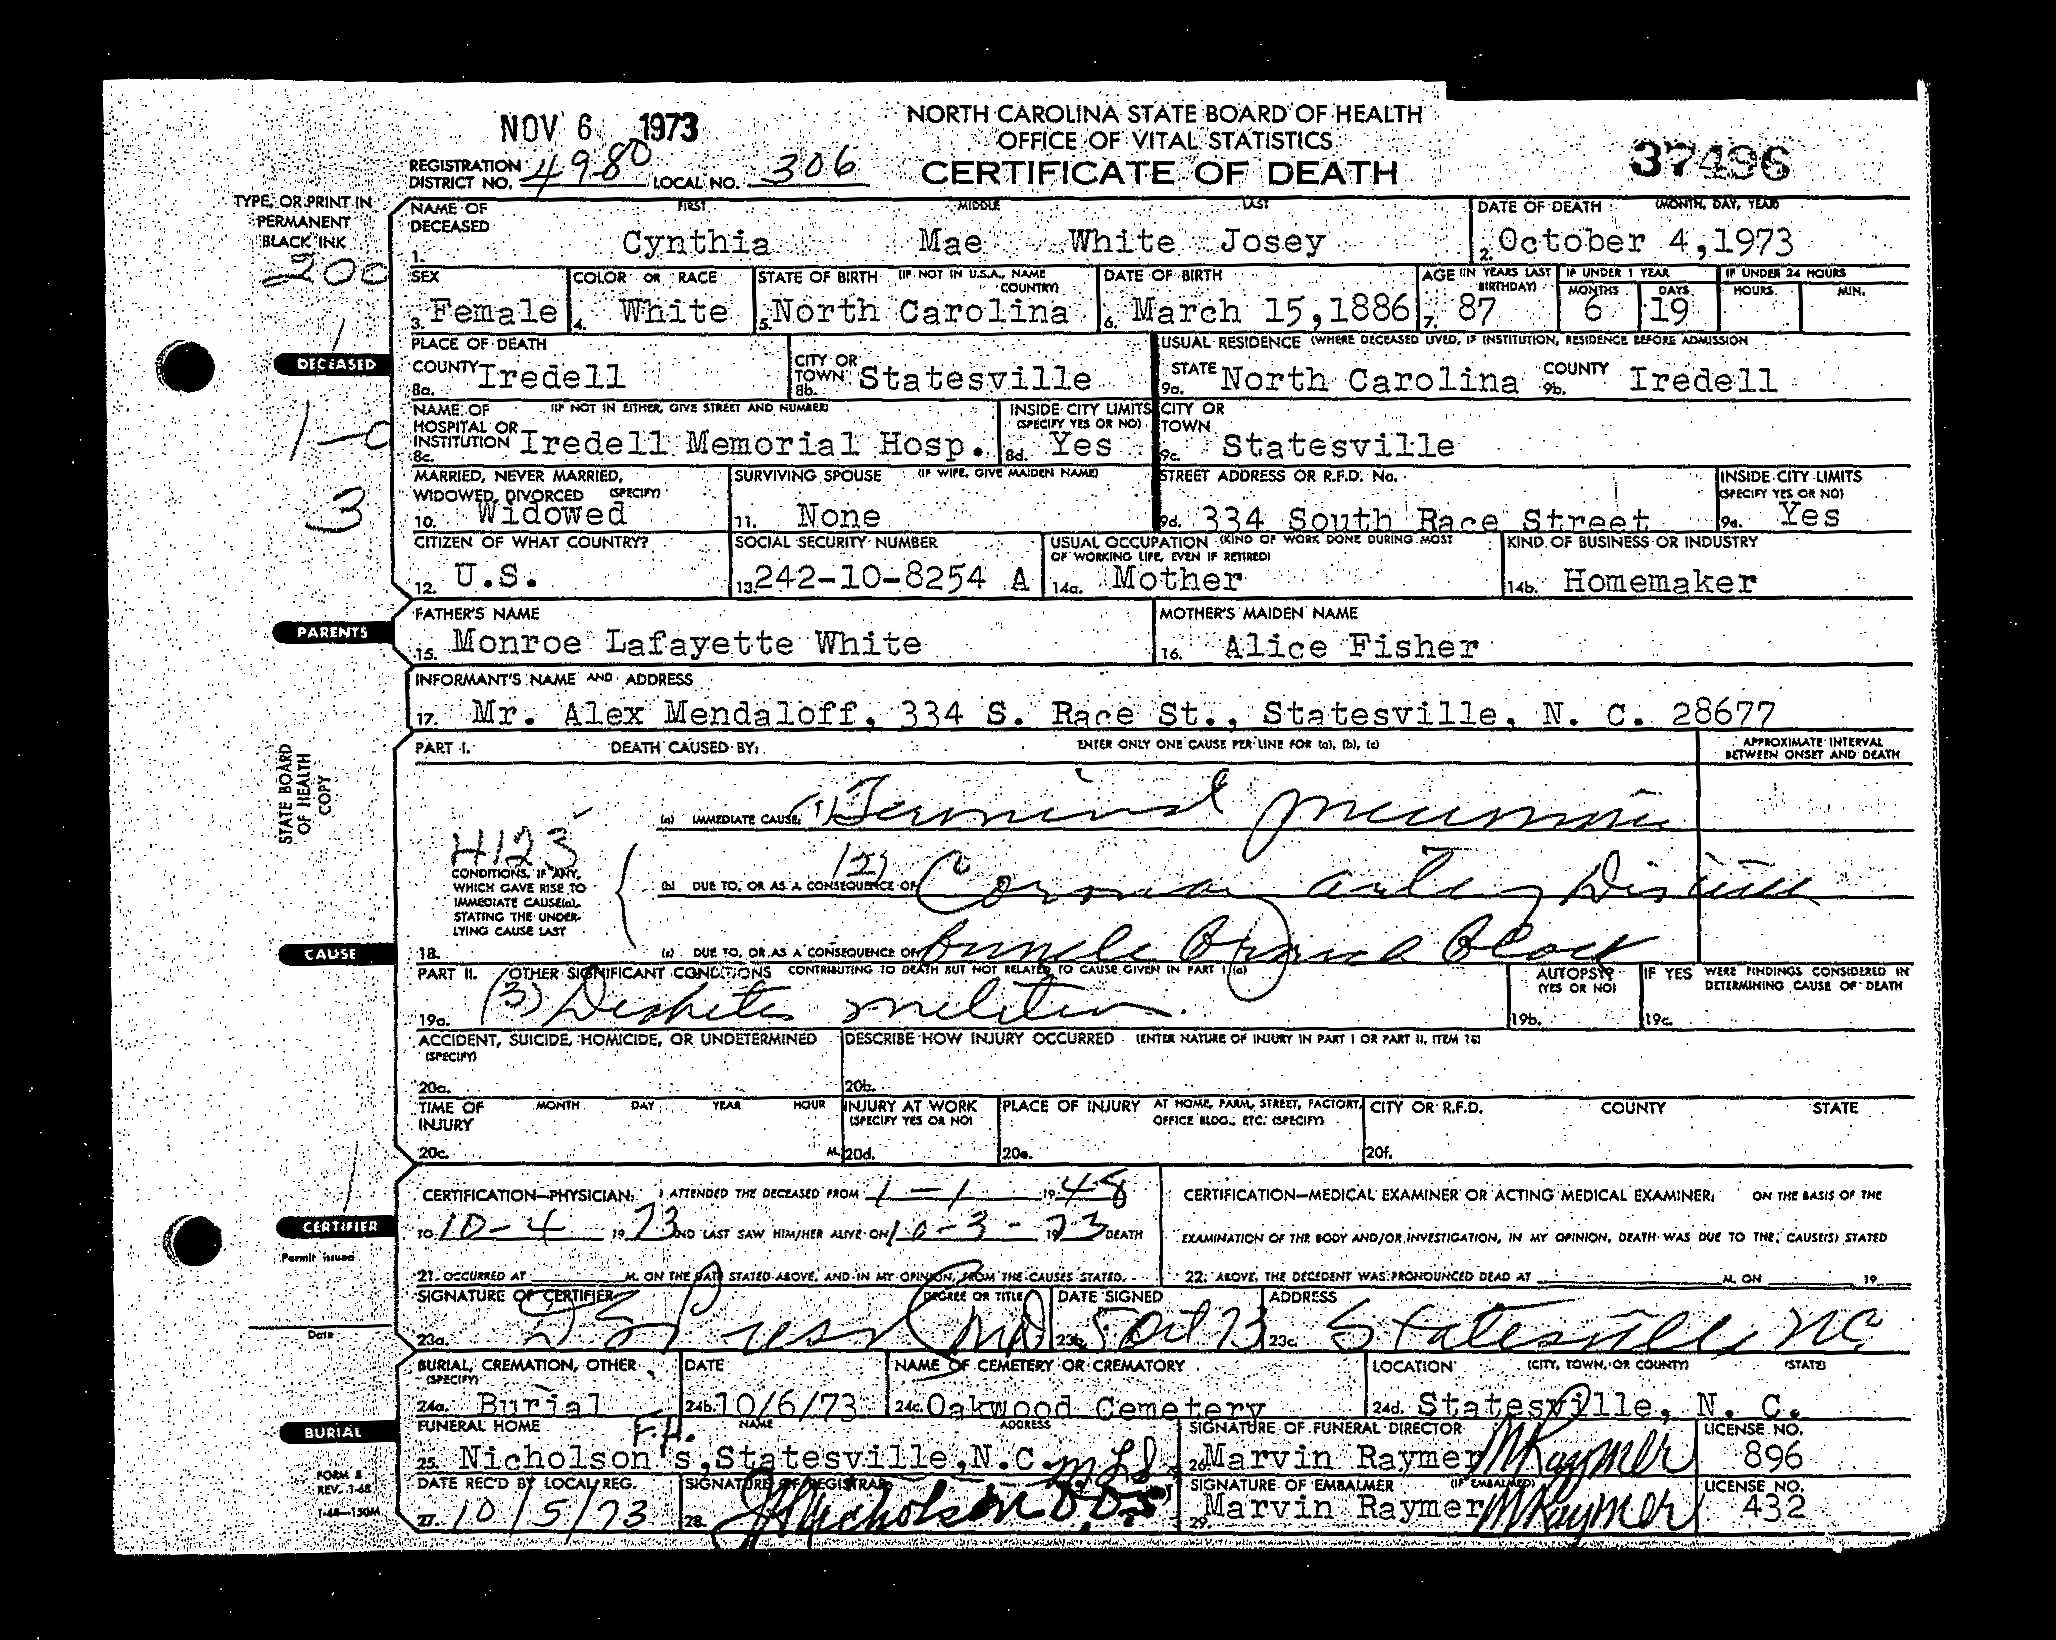 NOV 6 1973
NORTH CAROLINA STATE BOARD OF HEALTH
OFFICE OF VITAL STATISTICS
CERTIFICATE OF DEATH
37496
REGISTRATION DISTRICT NO. 4980 LOCAL NO. 306
TYPE, OR PRINT IN PERMANENT BLACK INK
200
NAME OF DECEASED FIRST MIDDLE LAST
1. Cynthia Mae White Josey
DATE OF DEATH (MONTH, DAY, YEAR)
2. October 4, 1973
SEX
3. Female
COLOR OR RACE
4. White
STATE OF BIRTH (IF NOT IN U.S.A., NAME COUNTRY)
5. North Carolina
DATE OF BIRTH
6. March 15, 1886
AGE (IN YEARS LAST BIRTHDAY)
7. 87
IF UNDER 1 YEAR
MONTHS 6 DAYS 19
IF UNDER 24 HOURS
HOURS MIN.
DECEASED
PLACE OF DEATH
COUNTY 8a. Iredell
CITY OR TOWN 8b. Statesville
USUAL RESIDENCE (WHERE DECEASED LIVED, IF INSTITUTION, RESIDENCE BEFORE ADMISSION
STATE 9a. North Carolina
COUNTY 9b. Iredell
NAME OF HOSPITAL OR INSTITUTION (IF NOT IN EITHER, GIVE STREET AND NUMBER)
8c. Iredell Memorial Hosp.
INSIDE CITY LIMITS (SPECIFY YES OR NO)
8d. Yes
CITY OR TOWN
9c. Statesville
3
MARRIED, NEVER MARRIED, WIDOWED, DIVORCED (SPECIFY)
10. Widowed
SURVIVING SPOUSE (IF WIFE, GIVE MAIDEN NAME)
11. None
STREET ADDRESS OR R.F.D. No.
9d. 334 South Race Street
INSIDE CITY LIMITS (SPECIFY YES OR NO)
9e. Yes
CITIZEN OF WHAT COUNTRY?
12. U.S.
SOCIAL SECURITY NUMBER
13. 242-10-8254 A
USUAL OCCUPATION (KIND OF WORK DONE DURING MOST OF WORKING LIFE, EVEN IF RETIRED)
14a. Mother
KIND OF BUSINESS OR INDUSTRY
14b. Homemaker
PARENTS
FATHER'S NAME
15. Monroe Lafayette White
MOTHER'S MAIDEN NAME
16. Alice Fisher
INFORMANT'S NAME AND ADDRESS
17. Mr. Alex Mendaloff, 334 S. Race St., Statesville, N. C. 28677
STATE BOARD OF HEALTH COPY
PART I. DEATH CAUSED BY: ENTER ONLY ONE CAUSE PER LINE FOR (a), (b), (c)
APPROXIMATE INTERVAL BETWEEN ONSET AND DEATH
(a) IMMEDIATE CAUSE: (1) Terminal pneumonia
4123
CONDITIONS, IF ANY, WHICH GAVE RISE TO IMMEDIATE CAUSE(a), STATING THE UNDERLYING CAUSE LAST
(b) DUE TO, OR AS A CONSEQUENCE OF (2) Coronary artery Disease
CAUSE
18. (c) DUE TO, OR AS A CONSEQUENCE OF Bundle Branch Block
PART II. OTHER SIGNIFICANT CONDITIONS CONTRIBUTING TO DEATH BUT NOT RELATED TO CAUSE GIVEN IN PART I (a)
19a. (3) Diabetes mellitus
AUTOPSY? (YES OR NO)
19b.
IF YES WERE FINDINGS CONSIDERED IN DETERMINING CAUSE OF DEATH
19c.
ACCIDENT, SUICIDE, HOMICIDE, OR UNDETERMINED (SPECIFY)
20a.
DESCRIBE HOW INJURY OCCURRED (ENTER NATURE OF INJURY IN PART I OR PART II, ITEM 18)
20b.
TIME OF INJURY MONTH DAY YEAR HOUR
20c. M.
INJURY AT WORK (SPECIFY YES OR NO)
20d.
PLACE OF INJURY AT HOME, FARM, STREET, FACTORY, OFFICE BLDG., ETC. (SPECIFY)
20e.
CITY OR R.F.D. COUNTY STATE
20f.
CERTIFIER
CERTIFICATION—PHYSICIAN: I ATTENDED THE DECEASED FROM 1-1 1948
TO 10-4 1973 AND LAST SAW HIM/HER ALIVE ON 10-3- 1973 DEATH
21. OCCURRED AT M. ON THE DATE STATED ABOVE, AND IN MY OPINION, FROM THE CAUSES STATED.
CERTIFICATION—MEDICAL EXAMINER OR ACTING MEDICAL EXAMINER: ON THE BASIS OF THE
EXAMINATION OF THE BODY AND/OR INVESTIGATION, IN MY OPINION, DEATH WAS DUE TO THE CAUSE(S) STATED
22. ABOVE, THE DECEDENT WAS PRONOUNCED DEAD AT M. ON 19
Permit issued
Date
SIGNATURE OF CERTIFIER DEGREE OR TITLE
23a. MD
DATE SIGNED
23b. 5 Oct 73
ADDRESS
23c. Statesville NC
BURIAL, CREMATION, OTHER (SPECIFY)
24a. Burial
DATE
24b. 10/6/73
NAME OF CEMETERY OR CREMATORY
24c. Oakwood Cemetery
LOCATION (CITY, TOWN, OR COUNTY) (STATE)
24d. Statesville, N. C.
BURIAL
FUNERAL HOME NAME ADDRESS
25. Nicholson's F.H., Statesville, N.C.
SIGNATURE OF FUNERAL DIRECTOR
26. Marvin Raymer M Raymer
LICENSE NO.
896
FORM 8
REV. 1-68
1-68—150M
DATE REC'D BY LOCAL REG.
27. 10/5/73
SIGNATURE OF REGISTRAR
28. Nicholson
SIGNATURE OF EMBALMER (IF EMBALMED)
29. Marvin Raymer M Raymer
LICENSE NO.
432